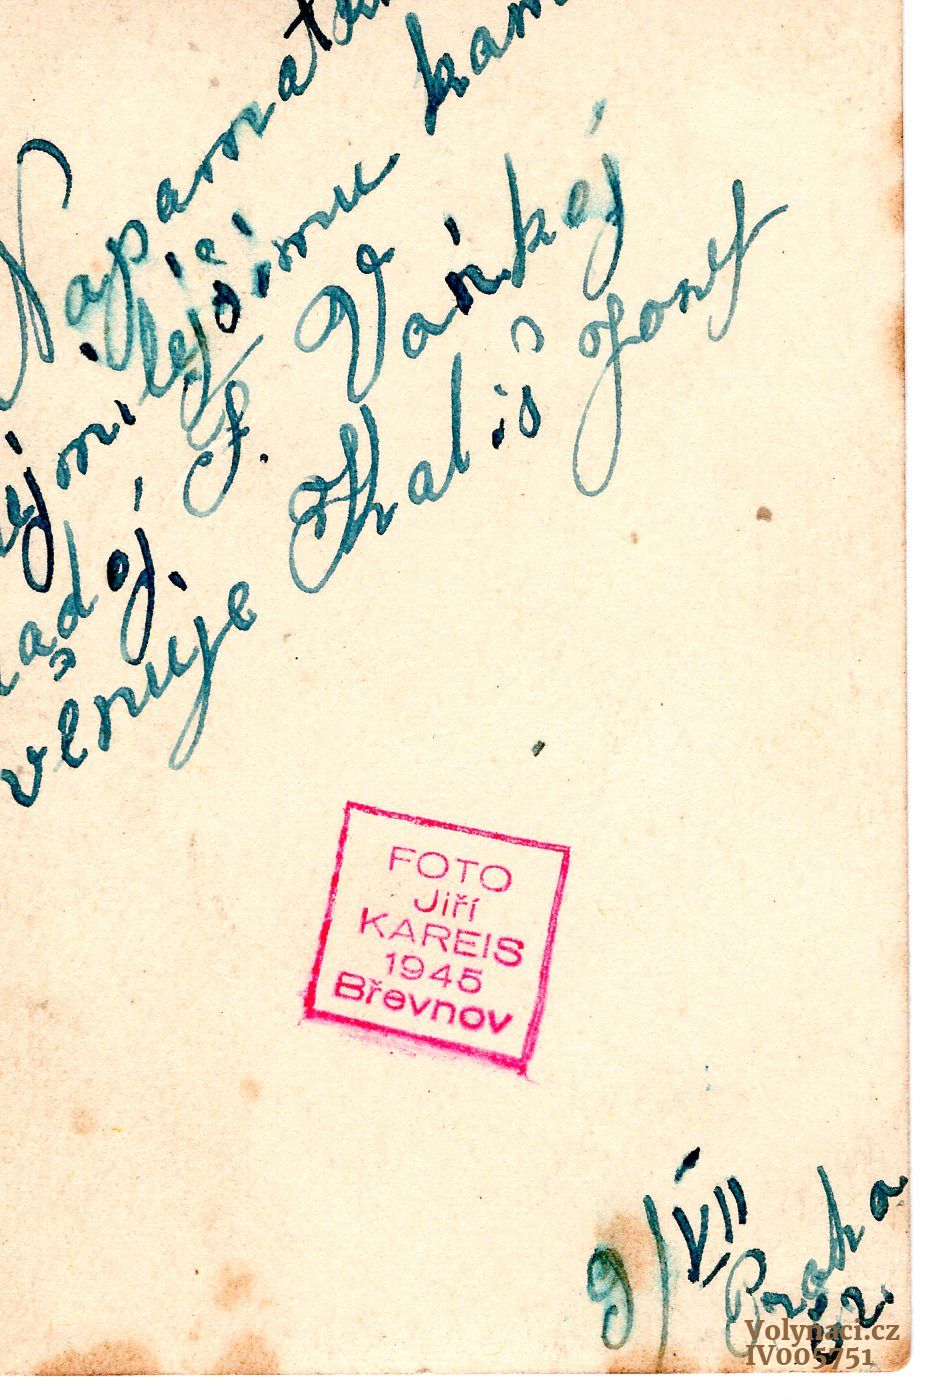 Na pamatku
nejmilejšimu kam
adój. F. Vaňkój
věnuje Kališ Josef
FOTO
Jiří
KAREIS
1945
Břevnov
9/VII
Praha
Volynaci.cz
IV005751